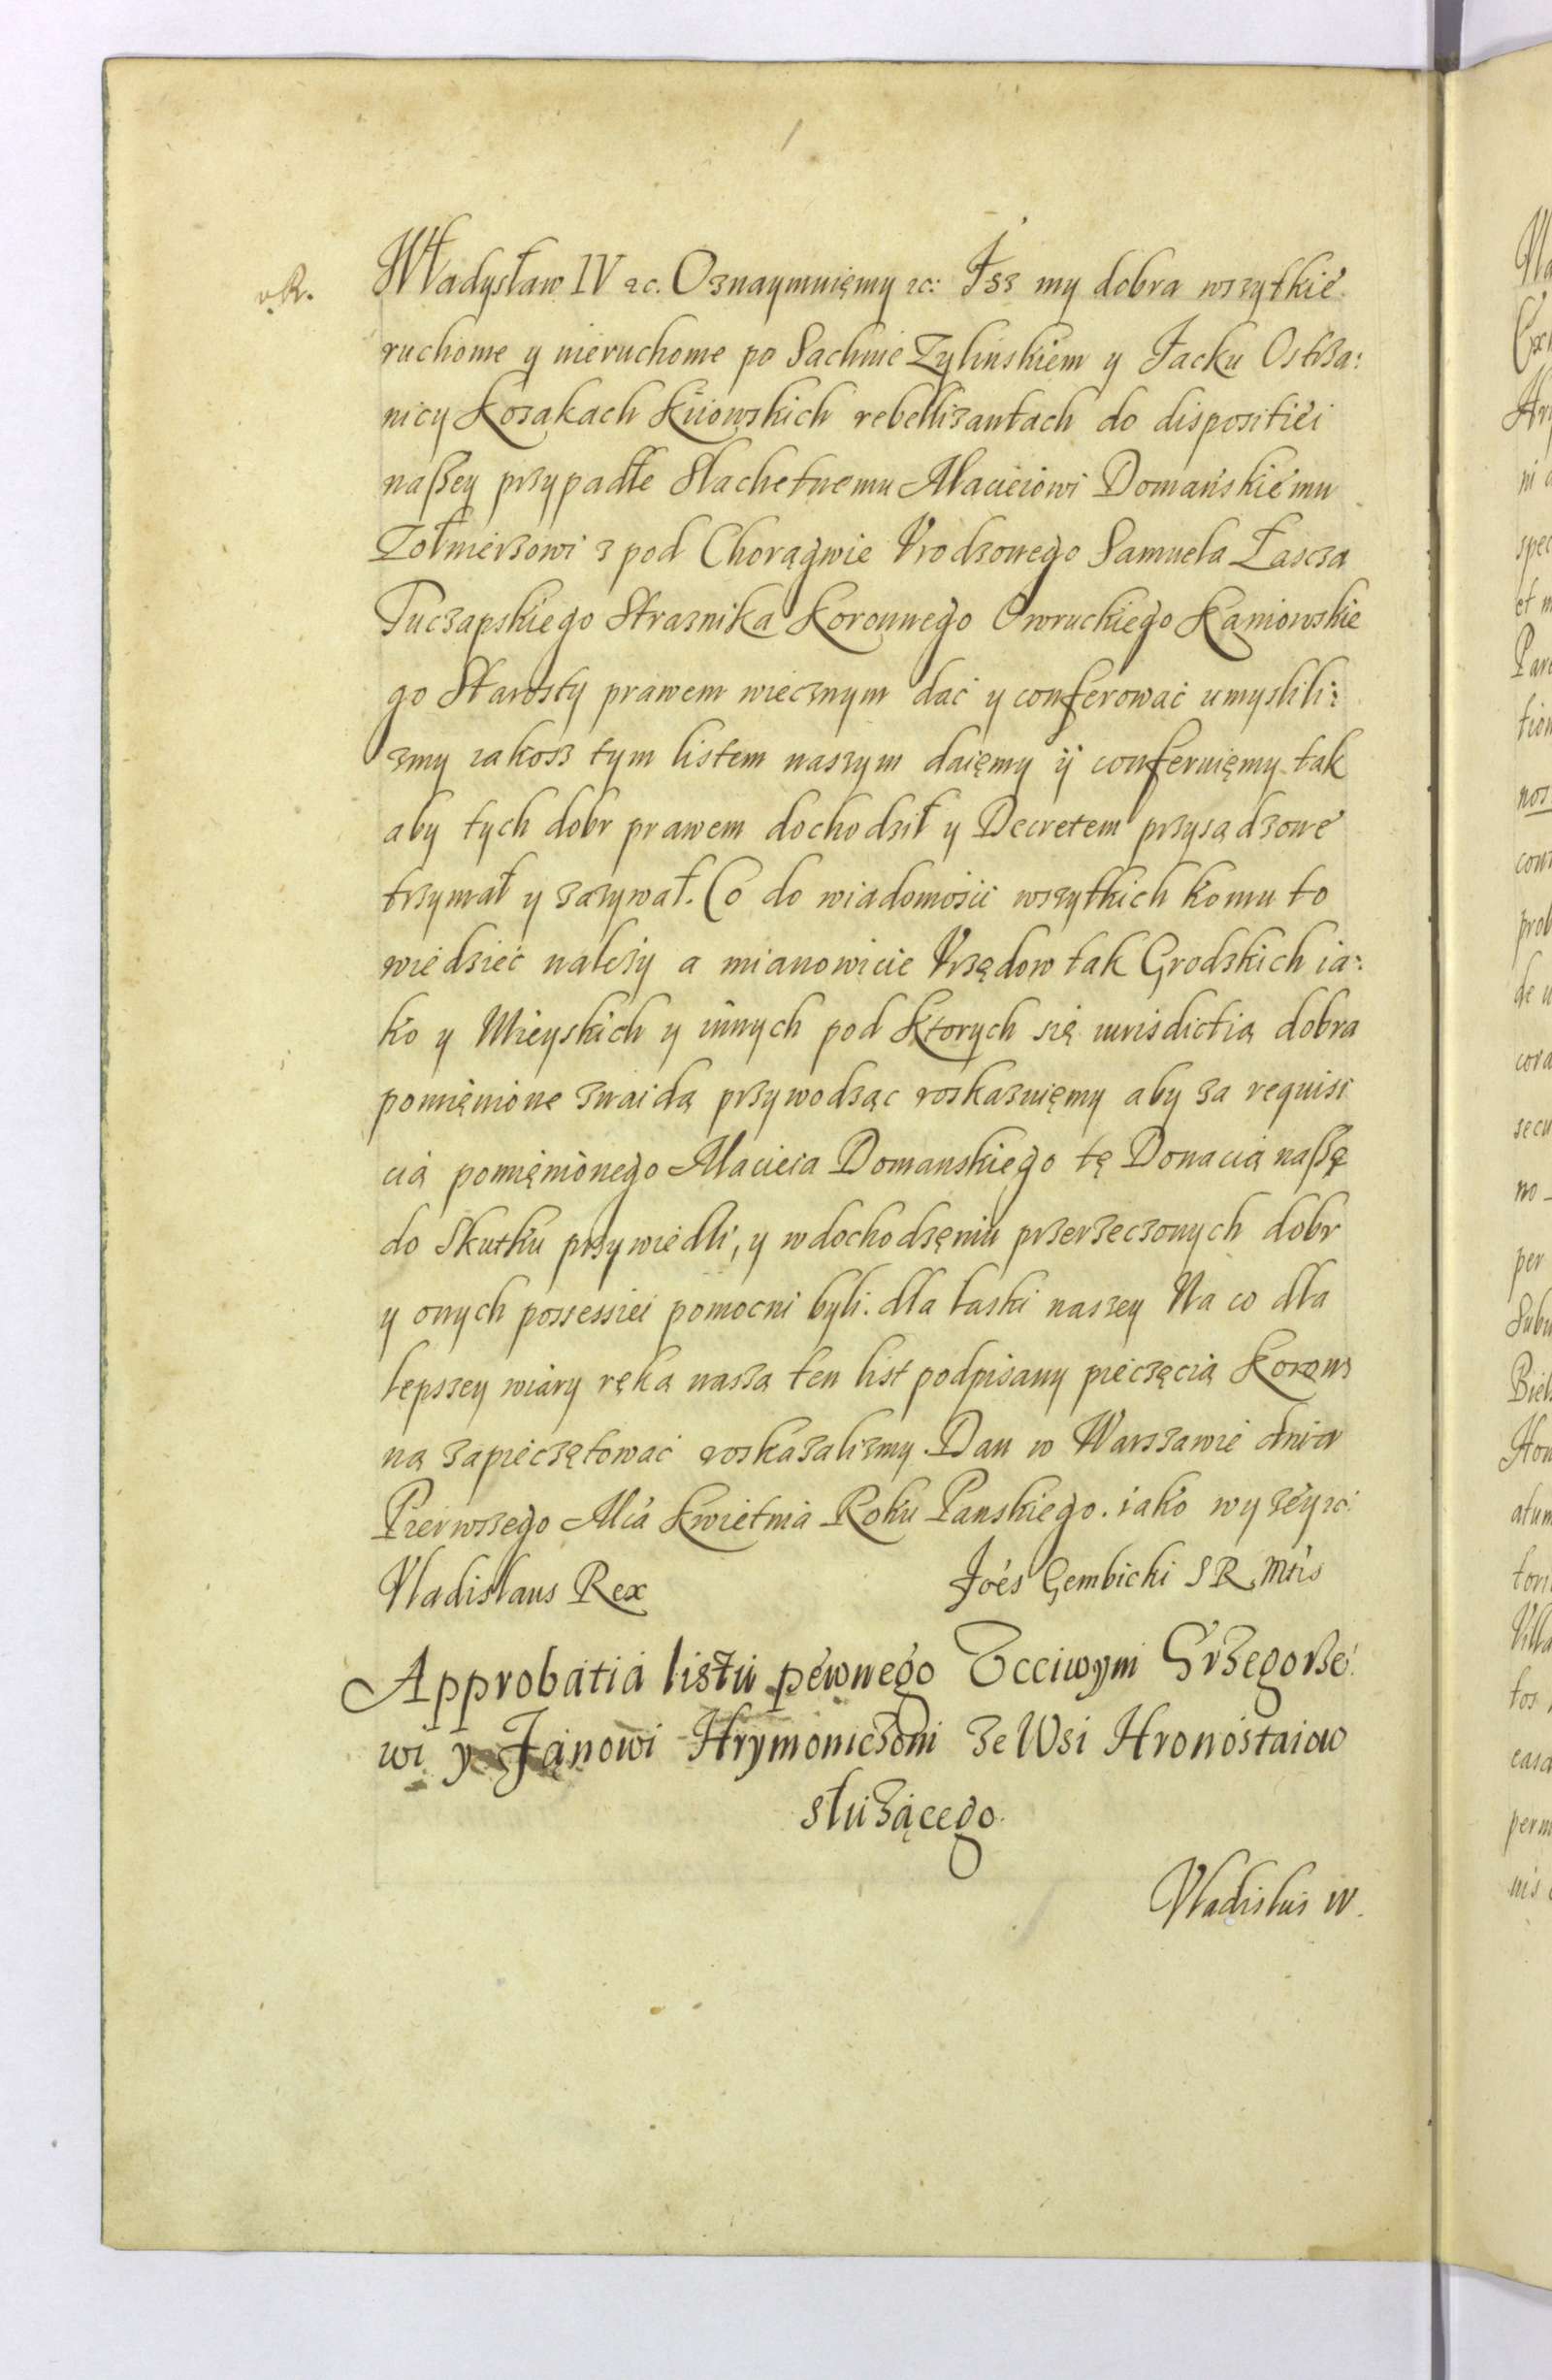 R.
Władysław IV 2c. Oznaymuięmy 2c: Isz my dobra wszytkie
ruchome y nieruchome po Sachnie Zylinskiem y Jacku Ostrza:
nicy Kozakach Kiiowskich rebellizantach do dispositiei
naßey przypadłe Slachetnemu Macieiowi Domańskiemu
Zołnierzowi z pod Chorągwie Vrodzonego Samuela Łascza
Tuczapskiego Straznika Koronnego Owruckiego Kaniowskie
go Starosty prawem wiecznym dać y conferować umyslili:
zmy iakosz tym listem naszym daięmy ÿ conferuięmy tak
aby tych dobr prawem dochodził y Decretem przysądzone
trzymał y zazywał. Co do wiadomości wszytkich komu to
wiedzieć należy a mianowicie Vrzędow tak Grodzkich ia:
ko y Mieyskich y innych pod ktorych się iurisdictią dobra
pomięnione znaidą przywodząc roskazuięmy aby za requisi
cią pomięnionego Macieia Domanskiego tę Donacią naßę
do Skutku przywiedli, y w dochodzęniu przerzeczonych dobr
y onych possessiei pomocni byli. dla łaski naszey Na co dla
lepszey wiary ręką naszą ten list podpisany pieczęcią Koron:
ną zapieczętować roskazalizmy. Dan w Warszawie dnia
Pierwszego Mcá Kwietnia Roku Panskiego. iako wyżey 2c:
Vladislaus Rex Joės Gembicki S R Mtis
Approbatia listu pewnego Vcciwym Grzegorze:
wi y Janowi Hrymoniczom ze Wsi Hronostaiow
służącego.
Vladislus IV.